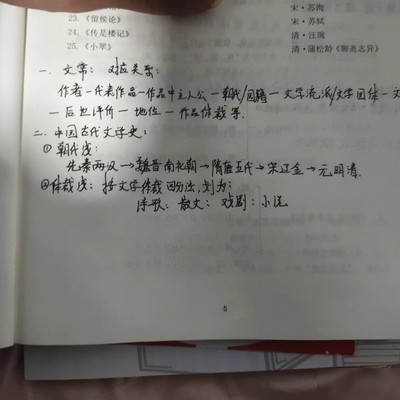 宋·苏洵
23.《留侯论》 宋·苏轼
24.《传是楼记》 清·汪琬
25.《小翠》 清·蒲松龄《聊斋志异》
一、文常：对应关系：
作者一代表作品一作品中主人公一朝代/国籍一文学流派/文学团体一文
一后世评价一地位一作品体裁等.
二、中国古代文学史：
①朝代线：
先秦两汉→魏晋南北朝→隋唐五代→宋辽金→元明清.
②体裁线：按文学体裁四分法,划为：
诗歌：散文：戏剧：小说
5